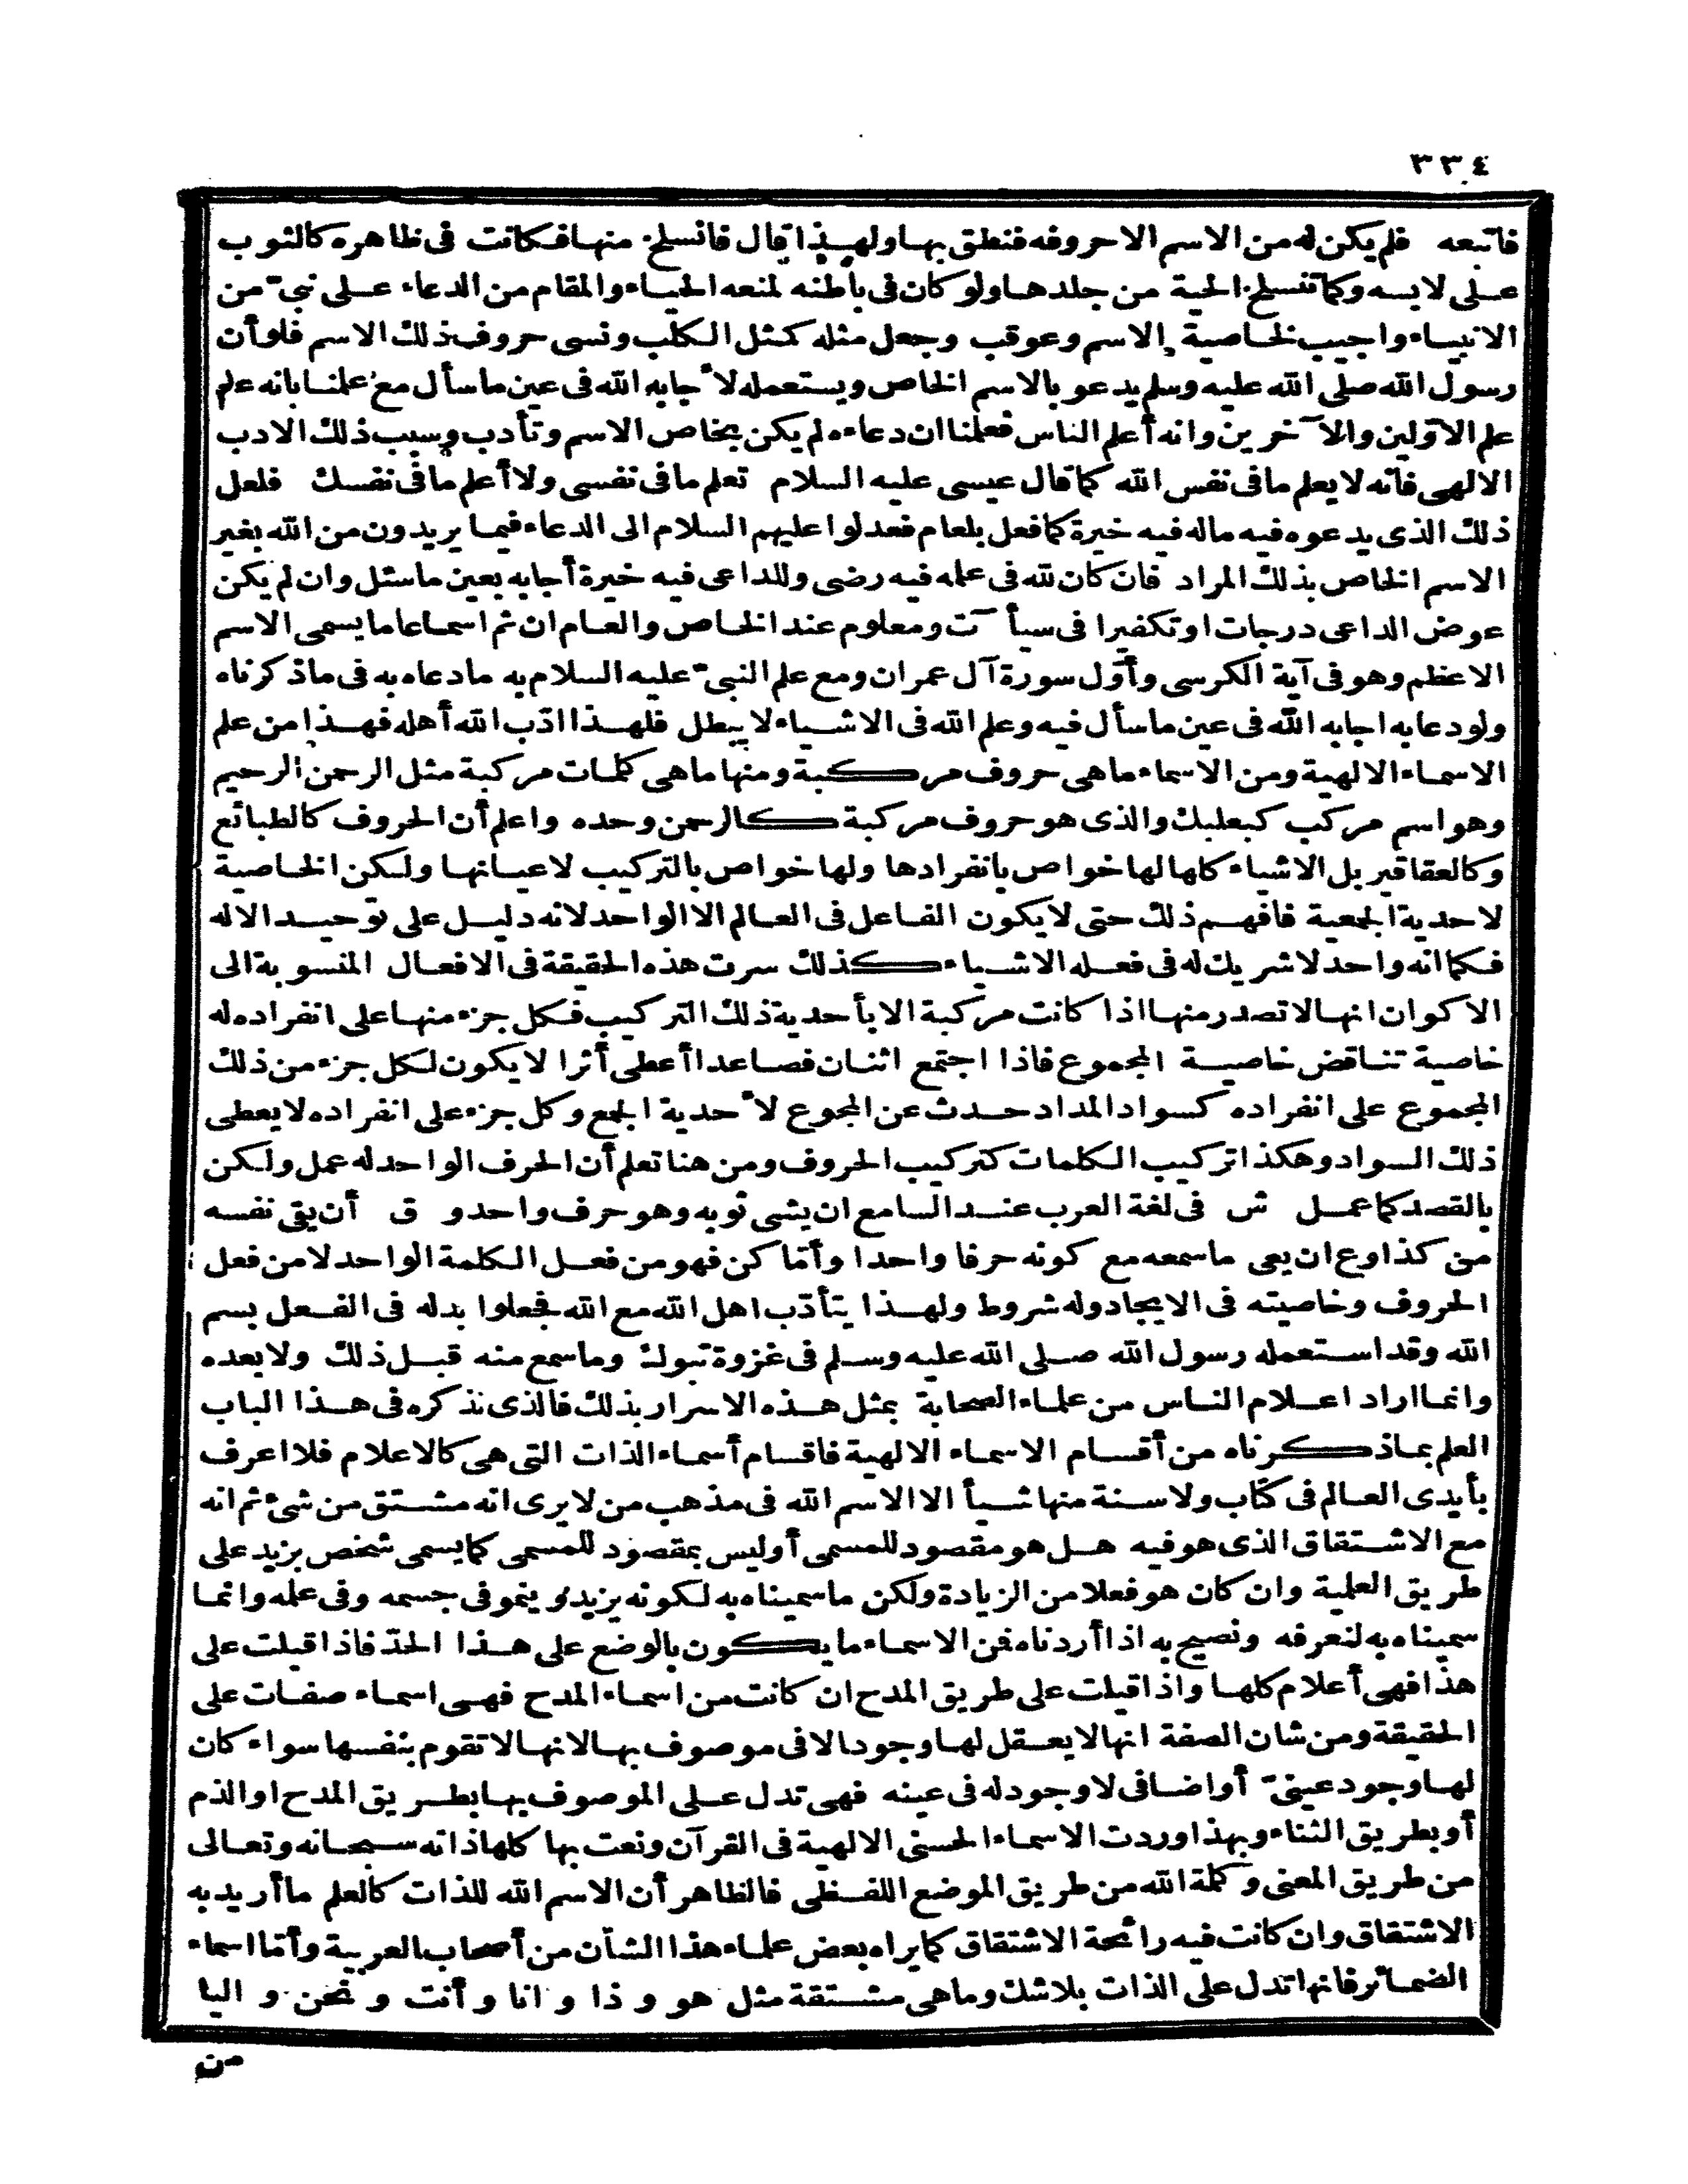 ٣٣٤
فاتبعه فلم يكن له من الاسم الا حروفه فنطق بها ولهذا قال فانسلخ منها فكانت فى ظاهره كالثوب
على لابسه وكما تنسلخ الحية من جلدها ولو كان فى باطنه لمنعه الحياء والمقام من الدعاء على نبىّ من
الانبياء واجيب لخاصية الاسم وعوقب وجعل مثله كمثل الكلب ونسى حروف ذلك الاسم فلو أن
رسول الله صلى الله عليه وسلم يدعو بالاسم الخاص ويستعمله لأجابه الله فى عين ما سأل مع علمنا بانه علم
علم الاوّلين والآخرين وانه أعلم الناس فعلمنا ان دعاءه لم يكن بخاص الاسم وتأدب وسبب ذلك الادب
الالهى فانه لا يعلم ما فى نفس الله كما قال عيسى عليه السلام تعلم ما فى نفسى ولا أعلم ما فى نفسك فلعل
ذلك الذى يدعوه فيه ماله فيه خيرة كما فعل بلعام فعدلوا عليهم السلام الى الدعاء فيما يريدون من الله بغير
الاسم الخاص بذلك المراد فان كان لله فى علمه فيه رضى وللداعى فيه خيرة أجابه بعين ما سئل وان لم يكن
عوض الداعى درجات او تكفيرا فى سيآت ومعلوم عند الخاص والعام ان ثم اسما عاما يسمى الاسم
الاعظم وهو فى آية الكرسى وأوّل سورة آل عمران ومع علم النبىّ عليه السلام به ما دعا به فى ما ذكرناه
ولو دعا به اجابه الله فى عين ما سأل فيه وعلم الله فى الاشياء لا يبطل فلهذا ادّب الله أهله فهذا من علم
الاسماء الالهية ومن الاسماء ما هى حروف مركبة ومنها ما هى كلمات مركبة مثل الرحمن الرحيم
وهو اسم مركب كبعلبك والذى هو حروف مركبة كالرحمن وحده واعلم أن الحروف كالطبائع
وكالعقاقير بل الاشياء كلها لها خواص بانفرادها ولها خواص بالتركيب لاعيانها ولكن الخاصية
لاحدية الجمعية فافهم ذلك حتى لا يكون الفاعل فى العالم الا الواحد لانه دليل على توحيد الاله
فكما انه واحد لا شريك له فى فعله الاشياء كذلك سرت هذه الحقيقة فى الافعال المنسوبة الى
الاكوان انها لا تصدر منها اذا كانت مركبة الا بأحدية ذلك التركيب فكل جزء منها على انفراده له
خاصية تناقض خاصية المجموع فاذا اجتمع اثنان فصاعدا أعطى أثرا لا يكون لكل جزء من ذلك
المجموع على انفراده كسواد المداد حدث عن المجموع لأحدية الجمع وكل جزء على انفراده لا يعطى
ذلك السواد وهكذا تركيب الكلمات كتركيب الحروف ومن هنا تعلم أن الحرف الواحد له عمل ولكن
بالقصد كما عمل ش فى لغة العرب عند السامع ان يشى ثوبه وهو حرف واحد و ق أن يقى نفسه
من كذا وع ان يعى ما سمعه مع كونه حرفا واحدا وأمّا كن فهو من فعل الكلمة الواحد لا من فعل
الحروف وخاصيته فى الايجاد وله شروط ولهذا يتأدّب اهل الله مع الله فجعلوا بدله فى الفعل بسم
الله وقد استعمله رسول الله صلى الله عليه وسلم فى غزوة تبوك وما سمع منه قبل ذلك ولا بعده
وانما اراد اعلام الناس من علماء الصحابة بمثل هذه الاسرار بذلك فالذى نذكره فى هذا الباب
العلم بما ذكرناه من أقسام الاسماء الالهية فاقسام أسماء الذات التى هى كالاعلام فلا اعرف
بأيدى العالم فى كتاب ولا سنة منها شيأ الا الاسم الله فى مذهب من لا يرى انه مشتق من شئ ثم انه
مع الاشتقاق الذى هو فيه هل هو مقصود للمسمى أو ليس بمقصود للمسمى كما يسمى شخص بزيد على
طريق العلمية وان كان هو فعلا من الزيادة ولكن ما سميناه به لكونه يزيد وينمو فى جسمه وفى علمه وانما
سميناه به لنعرفه ونصيح به اذا أردناه فمن الاسماء ما يكون بالوضع على هذا الحدّ فاذا قيلت على
هذا فهى أعلام كلها واذا قيلت على طريق المدح ان كانت من اسماء المدح فهى اسماء صفات على
الحقيقة ومن شان الصفة انها لا يعقل لها وجود الا فى موصوف بها لانها لا تقوم بنفسها سواء كان
لها وجود عينىّ أو اضافى لا وجود له فى عينه فهى تدل على الموصوف بها بطريق المدح او الذم
أو بطريق الثناء وبهذا وردت الاسماء الحسنى الالهية فى القرآن ونعت بها كلها ذاته سبحانه وتعالى
من طريق المعنى وكلمة الله من طريق الموضع اللفظى فالظاهر أن الاسم الله للذات كالعلم ما أريد به
الاشتقاق وان كانت فيه رائحة الاشتقاق كما يراه بعض علماء هذا الشأن من أصحاب العربية وأمّا اسماء
الضمائر فانها تدل على الذات بلا شك وما هى مشتقة مثل هو و ذا و انا و أنت و نحن و اليا
من